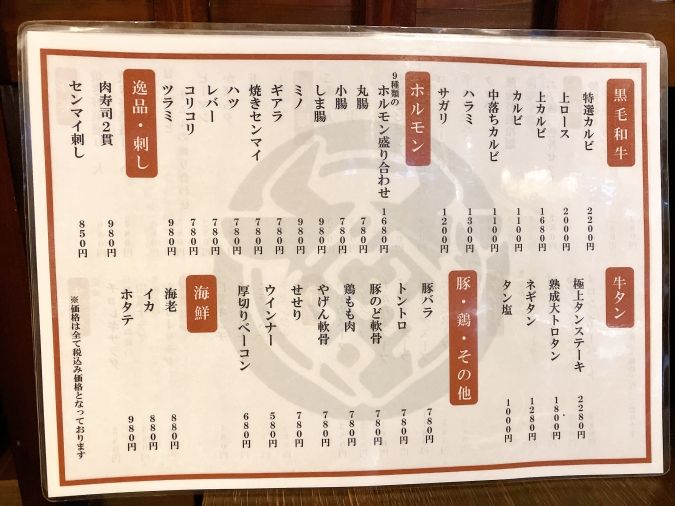 黒毛和牛
特選カルビ 2200円
上ロース 2000円
上カルビ 1680円
カルビ 1100円
中落ちカルビ 1100円
ハラミ 1300円
サガリ 1200円
ホルモン
9種類の
ホルモン盛り合わせ 1680円
丸腸 780円
小腸 780円
しま腸 980円
ミノ 980円
ギアラ 780円
焼きセンマイ 780円
ハツ 780円
レバー 780円
コリコリ 780円
ツラミ 980円
逸品・刺し
肉寿司2貫 980円
センマイ刺し 850円
牛タン
極上タンステーキ 2280円
熟成大トロタン 1800円
ネギタン 1280円
タン塩 1000円
豚・鶏・その他
豚バラ 780円
トントロ 780円
豚のど軟骨 780円
鶏もも肉 780円
やげん軟骨 780円
せせり 780円
ウインナー 580円
厚切りベーコン 680円
海鮮
海老 880円
イカ 880円
ホタテ 980円
※価格は全て税込み価格となっております